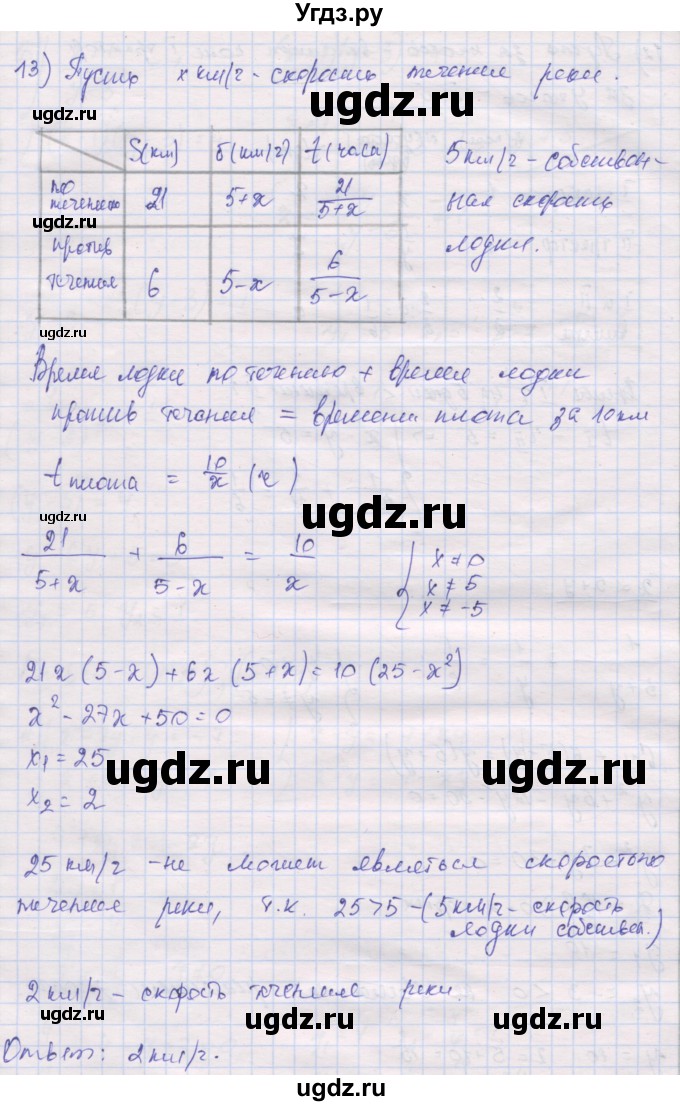 Угдз.ру
13) Пусть x км/ч - скорость течения реки.
ugdz.ru
ugdz.ru
S(км) б(км/ч) t(часа)
по течению 21 5+x 21/5+x
против течения 6 5-x 6/5-x
5км/ч - собствен-
ная скорость
лодки.
ugdz.ru
ugdz.ru
ugdz.ru
Время лодки по течению + время лодки
против течения = времени плота за 10 км
t плота = 10/x (ч)
ugdz.ru
ugdz.ru
21/5+x + 6/5-x = 10/x
{ x ≠ 0
x ≠ 5
x ≠ -5
21x (5-x) + 6x (5+x) = 10 (25-x²)
ugdz.ru
x² - 27x + 50 = 0
x₁ = 25
x₂ = 2
ugdz.ru
ugdz.ru
25 км/ч - не может являться скоростью
течения реки, т.к. 25>5 - (5км/ч - скорость
лодки собствен.)
ugdz.ru
2 км/ч - скорость течения реки.
ugdz.ru
ugdz.ru
Ответ: 2 км/ч.
ugdz.ru